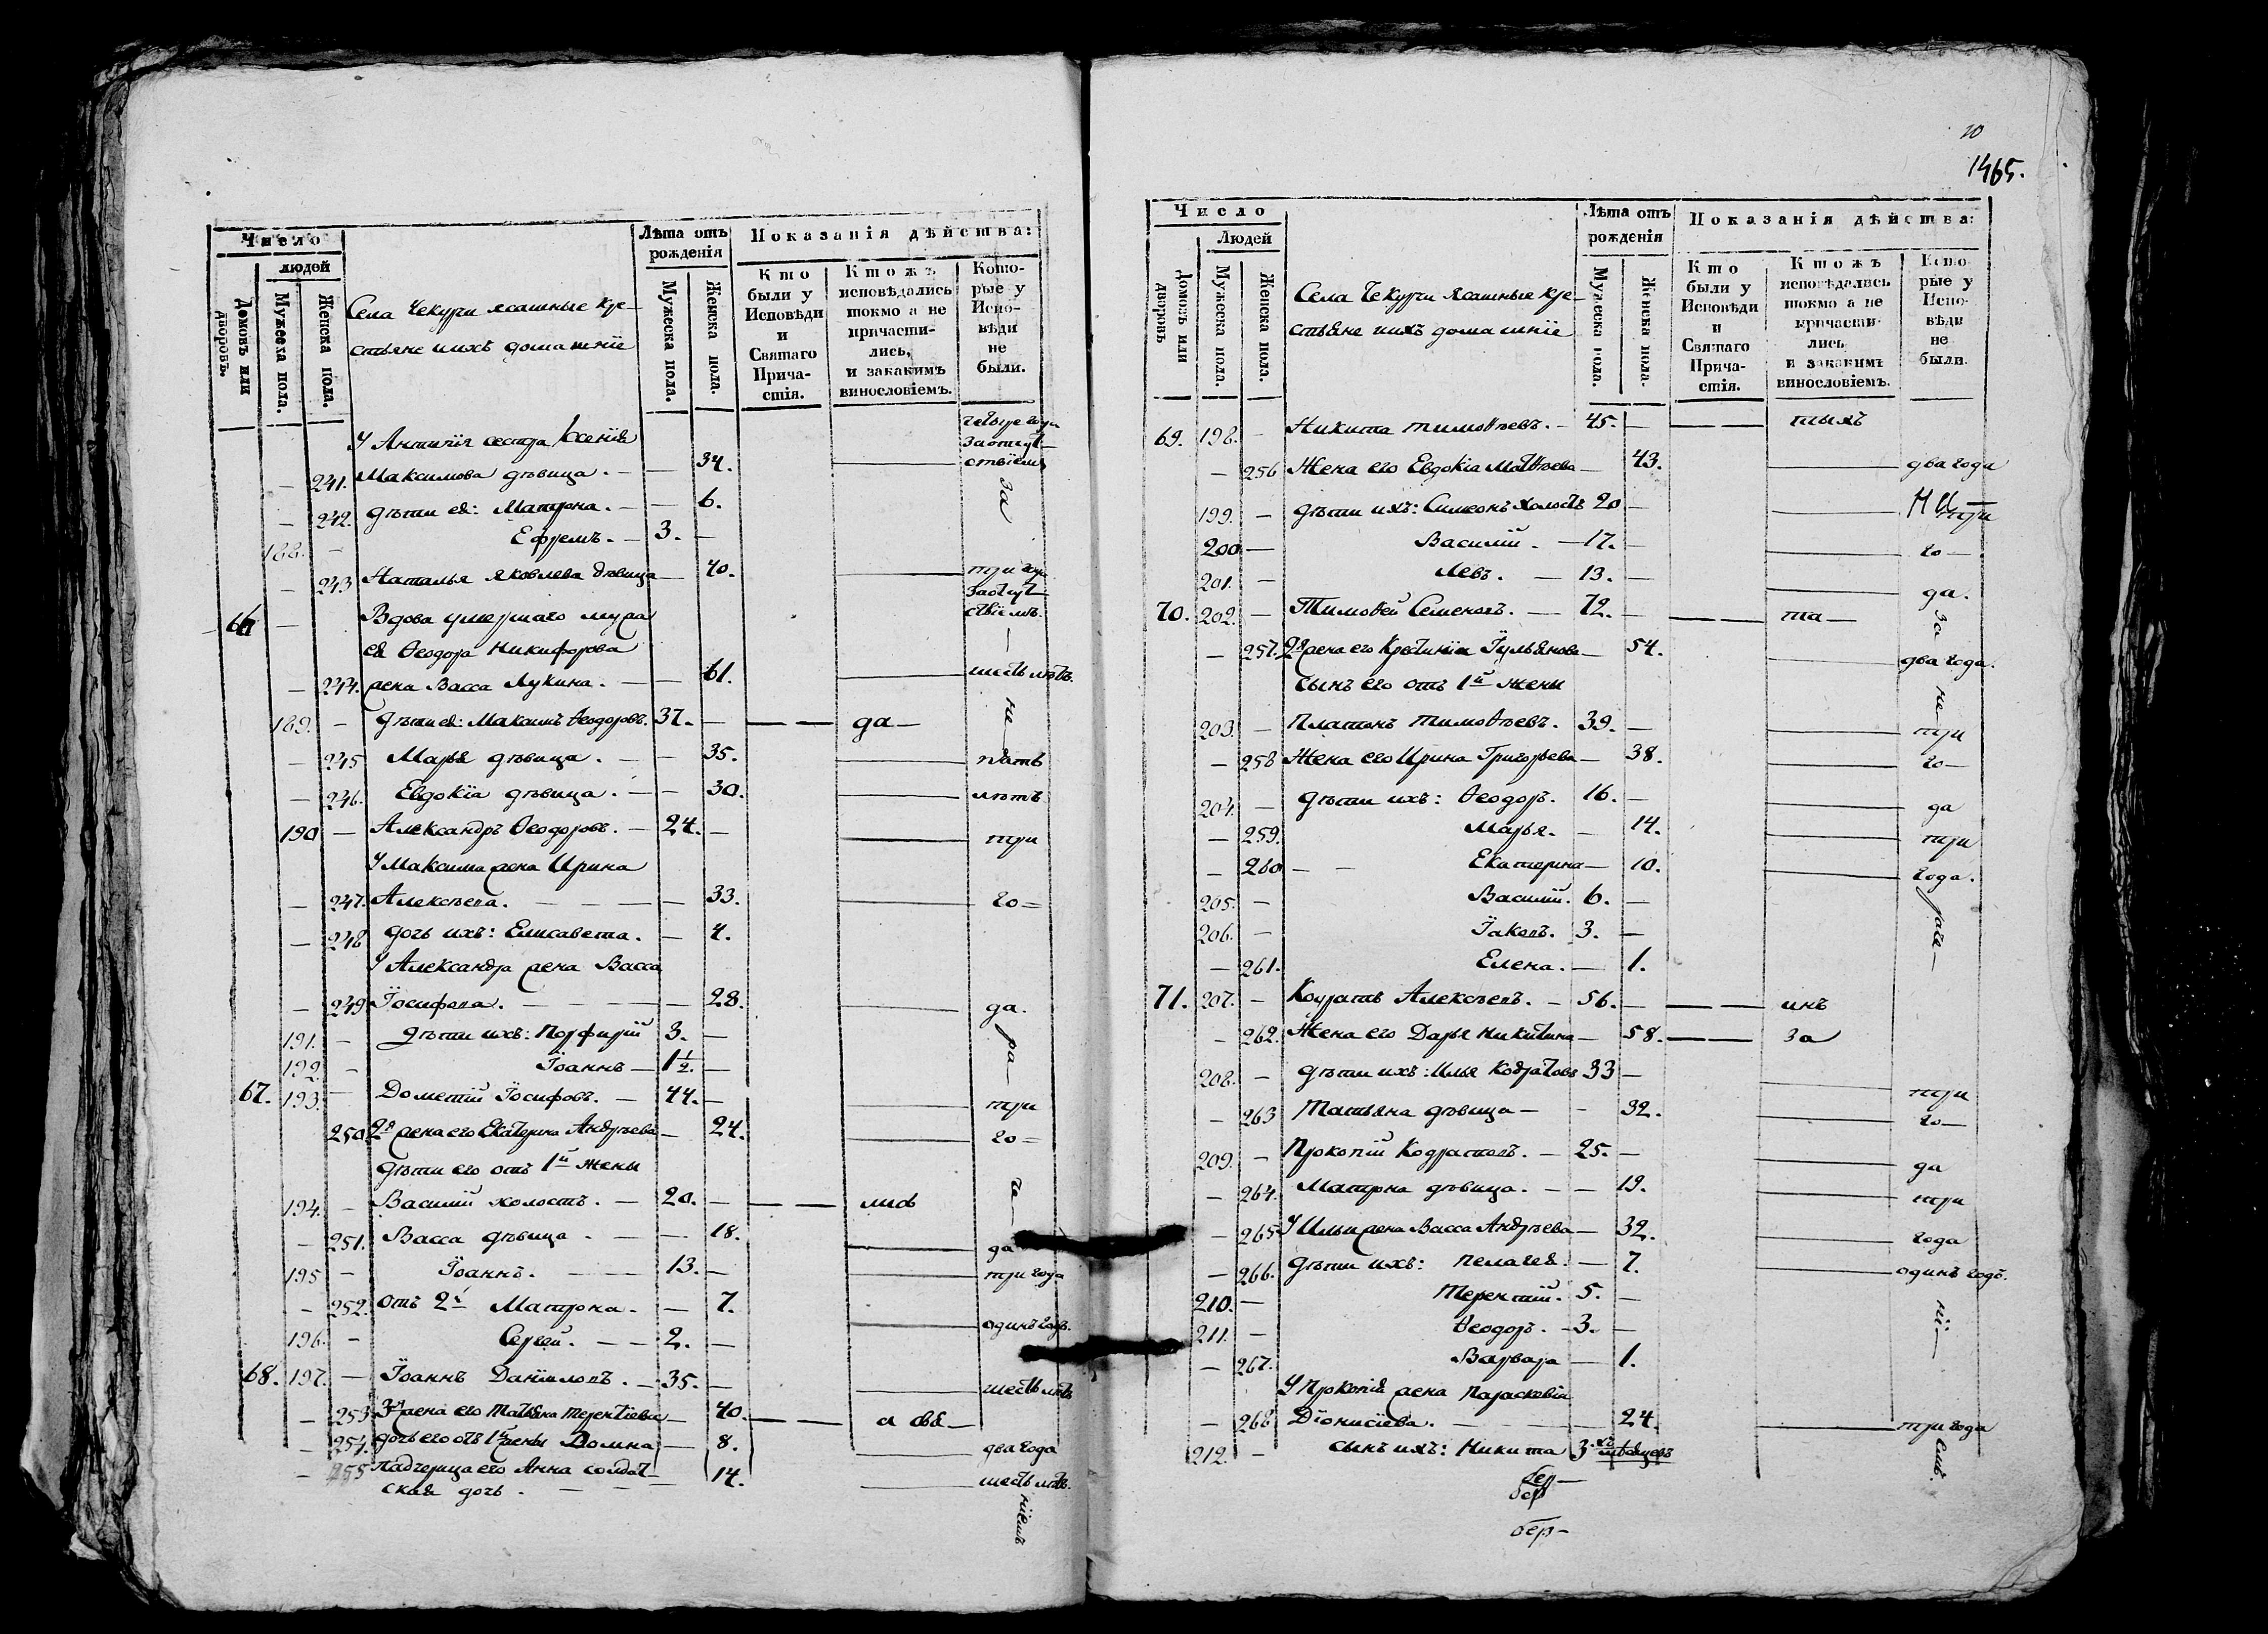 Число
людей
Домовъ или дворовъ.
Мужеска пола.
Женска пола.
Села Чекурчи ясашные кре-
стьяне ихъ домашнїе
Лѣта отъ рожденія
Мужеска пола.
Женска пола.
Показанія дѣйства:
Кто были у Исповѣди и Святаго Причастія.
Ктожъ исповѣдались токмо а не причастились, и закакимъ винословіемъ.
Которые у Исповѣди не были.
У Антипїя сестра Ксенїя
241. Максимова дѣвица. — — 34.
— 242. дѣти ея: Матрона. — — 6.
188. — Ефремъ. — 3. —
— 243 Наталья Яковлева дѣвица — 40. три года
за отсут-
ствїемъ.
66 — Вдова умершаго
Ѳеодора Никифорова
— 244. жена Васса Лукина. — — 61. шесть лѣтъ.
189. — дѣти ея: Максимъ Ѳеодоровъ. 37. — — — да —
— 245 Марья дѣвица. — — 35. пять
— 246. Евдокїа дѣвица. — — 30. лѣтъ
190 — Александръ Ѳеодоровъ. — 24. — три
У Максима жена Ирина
— 247. Алексѣева. — — — 33. го=
— 248 дочь ихъ: Елисавета. — 4.
У Александра жена Васса
— 249 Їосифова. — — — 28. да.
191. — дѣти ихъ: Порфирїй 3. —
192. — Їоаннъ — 1 1/2. —
67. 193. — Дометїй Їосифовъ. — 44. — три
250 2я жена его Екатерина Андрѣева — 24. го=
дѣти его отъ 1й жены
194. — Василїй холостъ. — 20. — — —
— 251. Васса дѣвица. — — 18. да
195 — Їоаннъ. — 13. — три года
— 252. отъ 2й Матрона. — — 7.
196. — Сергей. — — 2. — одинъ годъ.
68. 197. — Їоаннъ Данїиловъ. — 35. — шесть лѣтъ
— 253 3я жена его Татїяна Терентїева — 40. — —
— 254. дочь его отъ 1й жены Домна — 8. два года
— 255 Падчерица его Анна солдат- — 14. шесть лѣтъ.
ская дочь. — — —
20
1465.
Число
Людей
Домовъ или дворовъ
Мужеска пола.
Женска пола.
Села Чекурчи Ясашные кре-
стьяне ихъ домашнїе
Лѣта отъ рожденія
Мужеска пола.
Женска пола.
Показанія дѣйства:
Кто были у Исповѣди и Святаго Причастія.
Ктожъ исповѣдались токмо а не причастились и закакимъ винословіемъ.
Которые у Исповѣди не были.
69. 198. — Никита Тимоѳѣевъ. — 45. — — — тыхъ
— 256 Жена его Евдокїа Матѳѣева — 43. два года
199. — дѣти ихъ: Симеонъ холостъ 20 — три
200 — Василїй. — 17. — го —
201. — Левъ. — 13. — да.
70. 202. — Тимоѳей Семеновъ. — 72. — — — та —
— 257. 2я жена его Кристинїя Їульянова — 54. два года.
сынъ его отъ 1й жены
203. — Платонъ Тимоѳѣевъ. 39. — три
— 258 Жена его Ирина Григорьева — 38. го —
204. — дѣти ихъ: Ѳеодоръ. 16. — да
— 259. Марья. — 14. три
— 260 — — Екатерина — 10. года.
205. — Василїй. 6. —
206. — Їаковъ. 3. —
— 261. Елена. — 1.
71. 207. — Кодратъ Алексѣевъ. — 56. — — — инъ
— 262. Жена его Дарья Никитина — 58. — — за
208. — дѣти ихъ: Илья Кодратовъ 33 — три
— 263 Татьяна дѣвица — — 32. го —
209. — Прокопїй Кодратовъ. — 25. — да
— 264. Матрона дѣвица. — — 19. три
— 265 У Ильи жена Васса Андрѣева — 32. года
— 266. дѣти ихъ: Пелагея. — 7. одинъ годъ.
210. — Терентїй. 5. —
211. — Ѳеодоръ. — 3. —
— 267. Варвара — 1.
У Прокопїя жена Параскевїа
— 268 Дїонисїева. — — — 24. три года
212. — сынъ ихъ: Никита 3хъ мѣсяцевъ